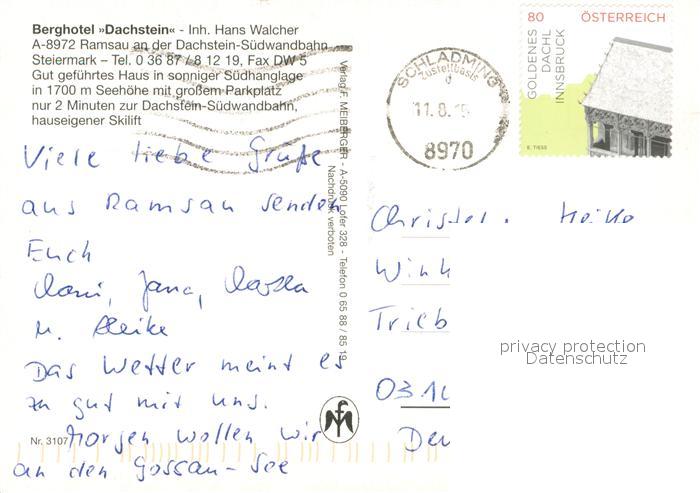 Berghotel »Dachstein« - Inh. Hans Walcher
A-8972 Ramsau an der Dachstein-Südwandbahn
Steiermark – Tel. 0 36 87 / 8 12 19, Fax DW 5
Gut geführtes Haus in sonniger Südhanglage
in 1700 m Seehöhe mit großem Parkplatz
nur 2 Minuten zur Dachstein-Südwandbahn,
hauseigener Skilift
Viele liebe Grüße
aus Ramsau senden
Euch
Jana,
u. Heike
Das Wetter meint es
zu gut mit uns.
Morgen wollen wir
an den Gossau-See
Nr. 3107
Verlag F. MEIBERGER - A-5090 Lofer 328 - Telefon 0 65 88 / 85 19
Nachdruck verboten
SCHLADMING
Zustellbasis
d
11.8.15
8970
80 ÖSTERREICH
GOLDENES
DACHL
INNSBRUCK
E. TIESS
Heiko
Wink
Trieb
03.1
Deu
privacy protection
Datenschutz